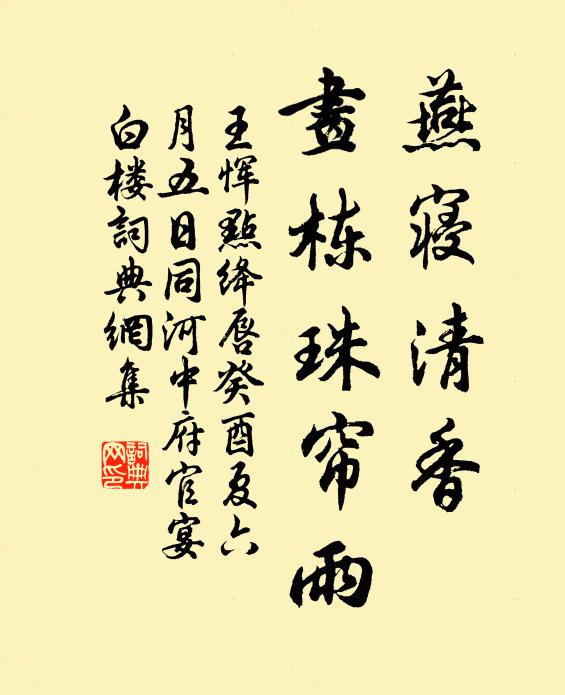 燕寝清香
畫栋珠帘雨
王恽點绛唇癸酉夏六
月五日同河中府官宴
白楼詞典網集
詞典
网印